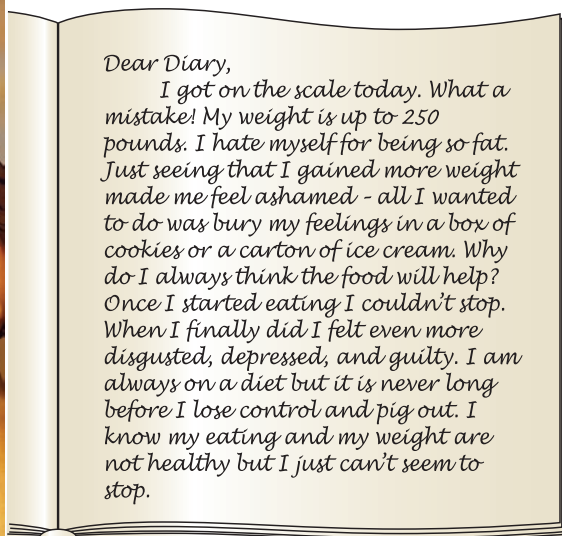 Dear Diary,
I got on the scale today. What a
mistake! My weight is up to 250
pounds. I hate myself for being so fat.
Just seeing that I gained more weight
made me feel ashamed – all I wanted
to do was bury my feelings in a box of
cookies or a carton of ice cream. Why
do I always think the food will help?
Once I started eating I couldn't stop.
When I finally did I felt even more
disgusted, depressed, and guilty. I am
always on a diet but it is never long
before I lose control and pig out. I
know my eating and my weight are
not healthy but I just can't seem to
stop.